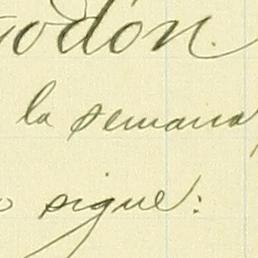 godón.
la semana,
o sigue: